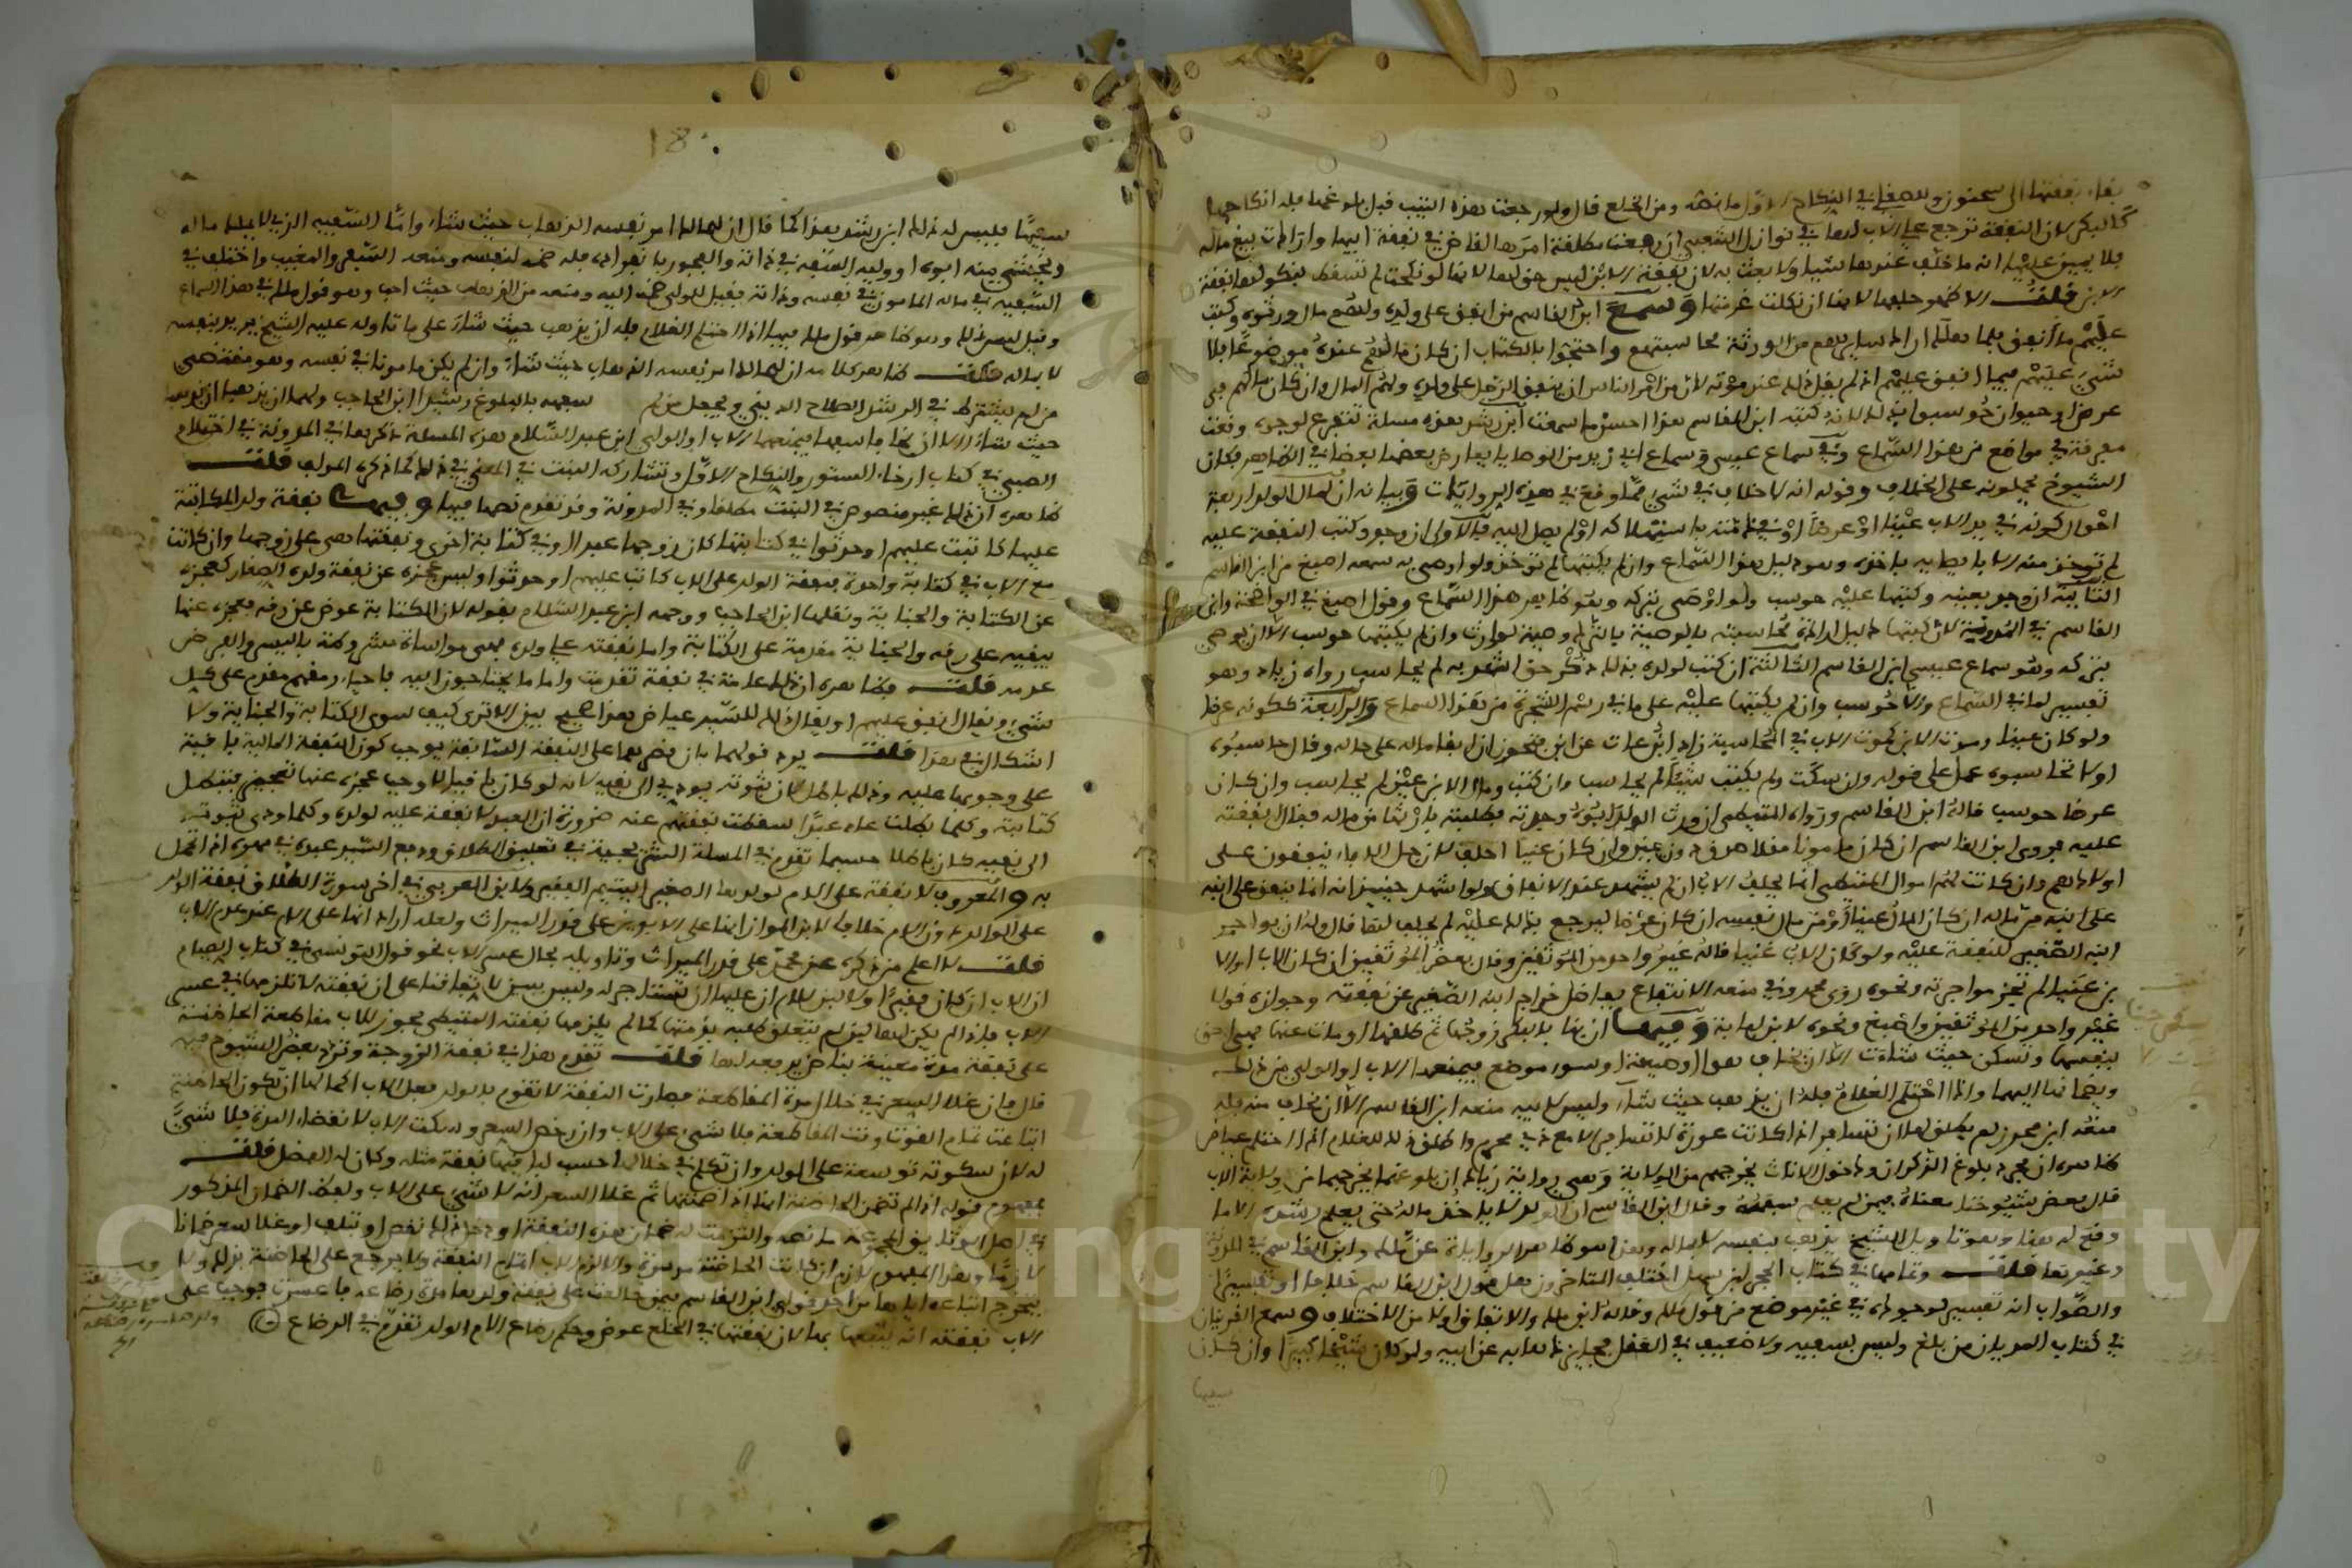 بقاء نفقتها الى سحنون وللصقلي في النكاح الاول ما نصه ومن الخلع قال ولو رجعت بعده الثيب قبل بلوغها فله انكاحها
كالبكر لان النفقة ترجع على الاب لها في نوازل الشعبي ان رجعت مطلقة امرها القاضي في نفقة ابيها وارادت بيع ماله
فلا يمين عليها انه ما خلف عندها شيا ولا بعث به لان نفقة الابن ليس حق لها لانها لو نكحت لم تسقط بنكولها نفقة
الابن قلت الاظهر حلفها لانها ان نكلت غرمتها وسمع ابن القاسم من انفق على ولده ولهم مال ورثوه وكتب
عليهم ما انفق فلما هلك اراد ساير هم من الورثة محاسبتهم واحتجوا بالكتاب ان كان مالهم عنده موضوعا فلا
شيء عليهم فيما انفق عليهم اذا لم يقل ذلك عند موته لان من امر الناس ان ينفق الرجل على ولده ولهم المال وان كان مالهم في
عرض او حيوان حوسبوا بذلك لانه كتبه ابن القاسم هذا احسن ما سمعت ابن رشد هذه مسلة تتفرع لوجوه وقعت
مفرقة في مواضع من هذا السماع وفي سماع عيسى وسماع ابي زيد من الوصايا يعارض بعضها بعضا في الظاهر فكان
الشيوخ يحملونه على الخلاف وقوله انه لا خلاف في شيء مما وقع في هذه الروايات وبيانه ان لمال الولد اربعة
احوال كونه في يد الاب عينا او عرضا او في ذمته باستهلاكه او لم يصل اليه فالاولى ان وجد وكتب النفقة عليه
لم توخذ منه الا بايصائه باخذه وهو دليل هذا السماع وان لم يكتبها لم توخذ ولو اوصى به سمعه اصبغ من ابن القاسم
الثانية ان وجد بعينه وكتبها عليه حوسب ولو اوصى بتركه وهو ظاهر هذا السماع وقول اصبغ في الواضحة وابن
القاسم في المدنية لان كتبها دليل ارادة محاسبته بالوصية بالترك وصية لوارث وان لم يكتبها حوسب الا ان يوصي
بتركه وهو سماع عيسى ابن القاسم الثالثة ان كتب لولده بذلك ذكر حق اشهد به لم يحاسب رواه زياد وهو
تفسير لما في السماع والا حوسب وان لم يكتبها عليه على ما في رسم الشجرة من هذا السماع والرابعة ككونه عرضا
ولو كان عينا وموت الابن كموت الاب في المحاسبة زاد ابن عات عن ابن محرز ان ابقا ماله على حاله وقال حاسبوه
او لا تحاسبوه عمل على قوله وان سكت ولم يكتب شيا لم يحاسب وان كتب ومال الابن عين لم يحاسب وان كان
عرضا حوسب قاله ابن القاسم ورواه المتيطي ان ورث الولد ابوه وجدته فطلبته بارثها من ماله فقال نفقته
عليه فروى ابن القاسم ان كان مامونا مقلا صدق دون يمين وان كان غنيا احلف لان جل الاباء ينفقون على
اولادهم وان كانت لهم اموال المتيطي انما يحلف الاب ان لم يشهد عند الانفاق ولو اشهد حينئذ انه انما ينفق على ابنه
على ابنه من ماله ان كان المال عينا او من مال نفسه ان كان عرضا ليرجع بذلك عليه لم يحلف لها قال وله ان يواجر
ابنه الصغير للنفقة عليه ولو كان الاب غنيا قاله غير واحد من الموثقين وقال بعض الموثقين ان كان الاب او الا
بن غنيا لم تجز مواجرته ونحوه روى محمد وفي منعه الانتفاع بفاضل خراج ابنه الصغير عن نفقته وجوازه قولا
غير واحد من الموثقين واصبغ ونحوه لابن لبابة وفيها ان بنى بالبكر زوجها ثم طلقها او مات عنها فهي احق
بنفسها وتسكن حيث شاءت الا ان يخاف هوا او ضيعة او سوء موضع فيمنعها الاب او الولي من ذلك
ويضمانها اليهما واذا احتلم الغلام فله ان يذهب حيث شاء وليس لابيه منعه ابن القاسم الا ان يخاف منه فله
منعه ابن محرز لم يطلق لها ان تتسافر اذا كانت عورة لا تسافر الا مع ذي محرم واطلق ذلك للغلام اذا احتلم عياض
ظاهره ان مجرد بلوغ الذكران ودخول الاناث يخرجهم من الولاية وهي رواية زياد ان بلوغهما يخرجهما من ولاية الاب
قال بعض شيوخنا معناه فيمن لم يعلم سفهه وقال ابن القاسم ان الولد لا ياخذ ماله حتى يعلم رشده الا ما
وقع له هنا وهو تاويل الشيخ يذهب بنفسه لا بماله وهذا هو ظاهر الرواية عن مالك وابن القاسم في المدونة
وغيرها قلت وتمامها في كتاب الحجر ابن سهل اختلف المتاخرون هل قول ابن القاسم خلاف او تفسير
والصواب انه تفسير لوجوده في غير موضع من قول مالك وقاله ابن مالك والاتفاق اولا من الاختلاف وسمع القرينان
في كتاب المديان من بلغ وليس بسفيه ولا ضعيف في العقل فحيازته ماله به عن ابيه ولو كان شيخا كبيرا وان كان
سفيها
18
سفيها فليس له ذلك ابن رشد هذا كما قال ان لمالك امر نفسه الذهاب حيث شاء واما السفيه الذي لا يملك ماله
ويخشى منه ابوه او وليه السفه في ذاته والفجور بانفراده فله ضمه لنفسه ومنعه السفر والمغيب واختلف في
السفيه في ماله المامون في نفسه وذاته فقيل للولي ضمه اليه ومنعه من الذهاب حيث احب وهو قول مالك في هذا السماع
وقيل ليس ذلك وهو ظاهر قول مالك فيها اذا احتلم الغلام فله ان يذهب حيث شاء على ما تاوله عليه الشيخ يريد بنفسه
لا بماله قلت ظاهر كلامه ان لمالك امر نفسه الذهاب حيث شاء وان لم يكن مامونا في نفسه وهو مقتضى
من لم يشترط في الرشد الصلاح الديني ويجعل من لم سفهه بالبلوغ رشيدا ابن الحاجب ولهما ان يذهبا اذا
حيث شاءا الا ان يخاف سفها فيمنعهما الاب او الولي ابن عبد السلام هذه المسلة ذكرها في المدونة في احتلام
الصبي في كتاب ارخاء الستور والنكاح الاول وتشاركه البنت في المعنى في ذلك كما ذكره المولف قلت
ظاهره ان ذلك غير منصوص في البنت مطلقا وفي المدونة وقد تقدم نصها فيها وفيها نفقة ولد المكاتبة
عليها كاتبت عليهم او حدثوا في كتابتها كان زوجها عبدا او في كتابة اخرى ونفقتها هي على زوجها وان كانت
مع الاب في كتابة واحدة فنفقة الولد على الاب كاتب عليهم او حدثوا وليس عجزه عن نفقة ولده الصغار كعجزه
عن الكتابة والجناية ونقلها ابن الحاجب ووجهه ابن عبد السلام بقوله لان الكتابة عوض عن رقه فعجزه عنها
يبقيه على رقه والجناية مقدمة على الكتابة واما نفقته على ولده فهي مواساة مشروطة باليسر والفرض
عدمه قلت فظاهره ان ذلك عامة في نفقة تقدمت واما ما يحتاجون اليه باحياء رمقهم مقدم على كل
شيء ويقال انفق عليهم او بقا اذلك للسيد عياض هذا صحيح بين الا ترى كيف سوى الكتابة والجناية ولا
اشكال في هذا قلت يرد قولهما بان قصرهما على النفقة السابقة يوجب كون النفقة الحالية باقية
على وجوبها عليه وذلك باطل لان ثبوته يودي الى نفيه لانه لو كان باقيا لاوجب عجزه عنها تعجيزه فتبطل
كتابته وكلما بطلت عاد عبدا سقطت نفقتهم عنه ضرورة ان العبد لا نفقة عليه لولده وكلما ودى ثبوته
الى نفيه كان باطلا حسبما تقدم في المسلة السريجية في تعليق الطلاق وبيع السيد عبده في مهره اذا تحمل
به والمعروف لا نفقة على الام لولدها الصغير اليتيم الفقير ولابن العربي في اخر سورة الطلاق نفقة الولد
على الوالد دون الام خلافا لابن المواز انها على الابوين على قدر الميراث ولعله اراد انها على الام عند عدم الاب
قلت لا اعلم من ذكره عن محمد على قدر الميراث وتاويله بحال عسر الاب نحو قول التونسي في كتاب الصيام
ان الاب ان كان فقيرا ولا لبن للام ان عليها ان تستاجر له وليس ببين لاتفاقنا على ان نفقته لا تلزمها في عسر
الاب فاذا لم يكن لها لبن لم يتعلق طلبه بذمتها كما لم يلزمها نفقته المتيطي يجوز للاب مقاطعة الحاضنة
على نفقة مدة معينة بناض يريد معدلها قلت تقدم هذا في نفقة الزوجة وتردد بعض الشيوخ فيه
قال فان غلا السعر في خلال مدة المقاطعة فصارت النفقة لا تقوم بالولد فعلى الاب اكمالها ان تكون الحاضنة
ابتاعت تمام القوت وقت المقاطعة فلا شيء على الاب وان رخص السعر وسكت الاب لانقضاء المدة فلا شيء
له لان سكوته توسعة على الولد وان تكلم في خلالها حسب لها فيها نفقة مثله وكان له الفضل قلت
مفهوم قوله اذا لم تضمن الحاضنة انها اذا ضمنتها ثم غلا السعر انه لا شيء على الاب ولفظ الضمان المذكور
في اهل الوثائق المجموعة ما نصه والتزمت له ضمان هذه النفقة او دخل ذلك نقص او تلف او غلا سعر ضمانا
لازما وهذا المفهوم لازم ان كانت الحاضنة موسرة والا لزم الاب اتمام النفقة ولا يرجع على الحاضنة بذلك ولا
يتخرج اتباعه اياها من احد قولي ابن القاسم فيمن خالعت على نفقة ولدها مدة رضاعه فاعسرت فوجب على
الاب نفقته انه يتبعها بها لان نفقتها في الخلع عوض وحكم رضاع الام الولد تقدم في الرضاع